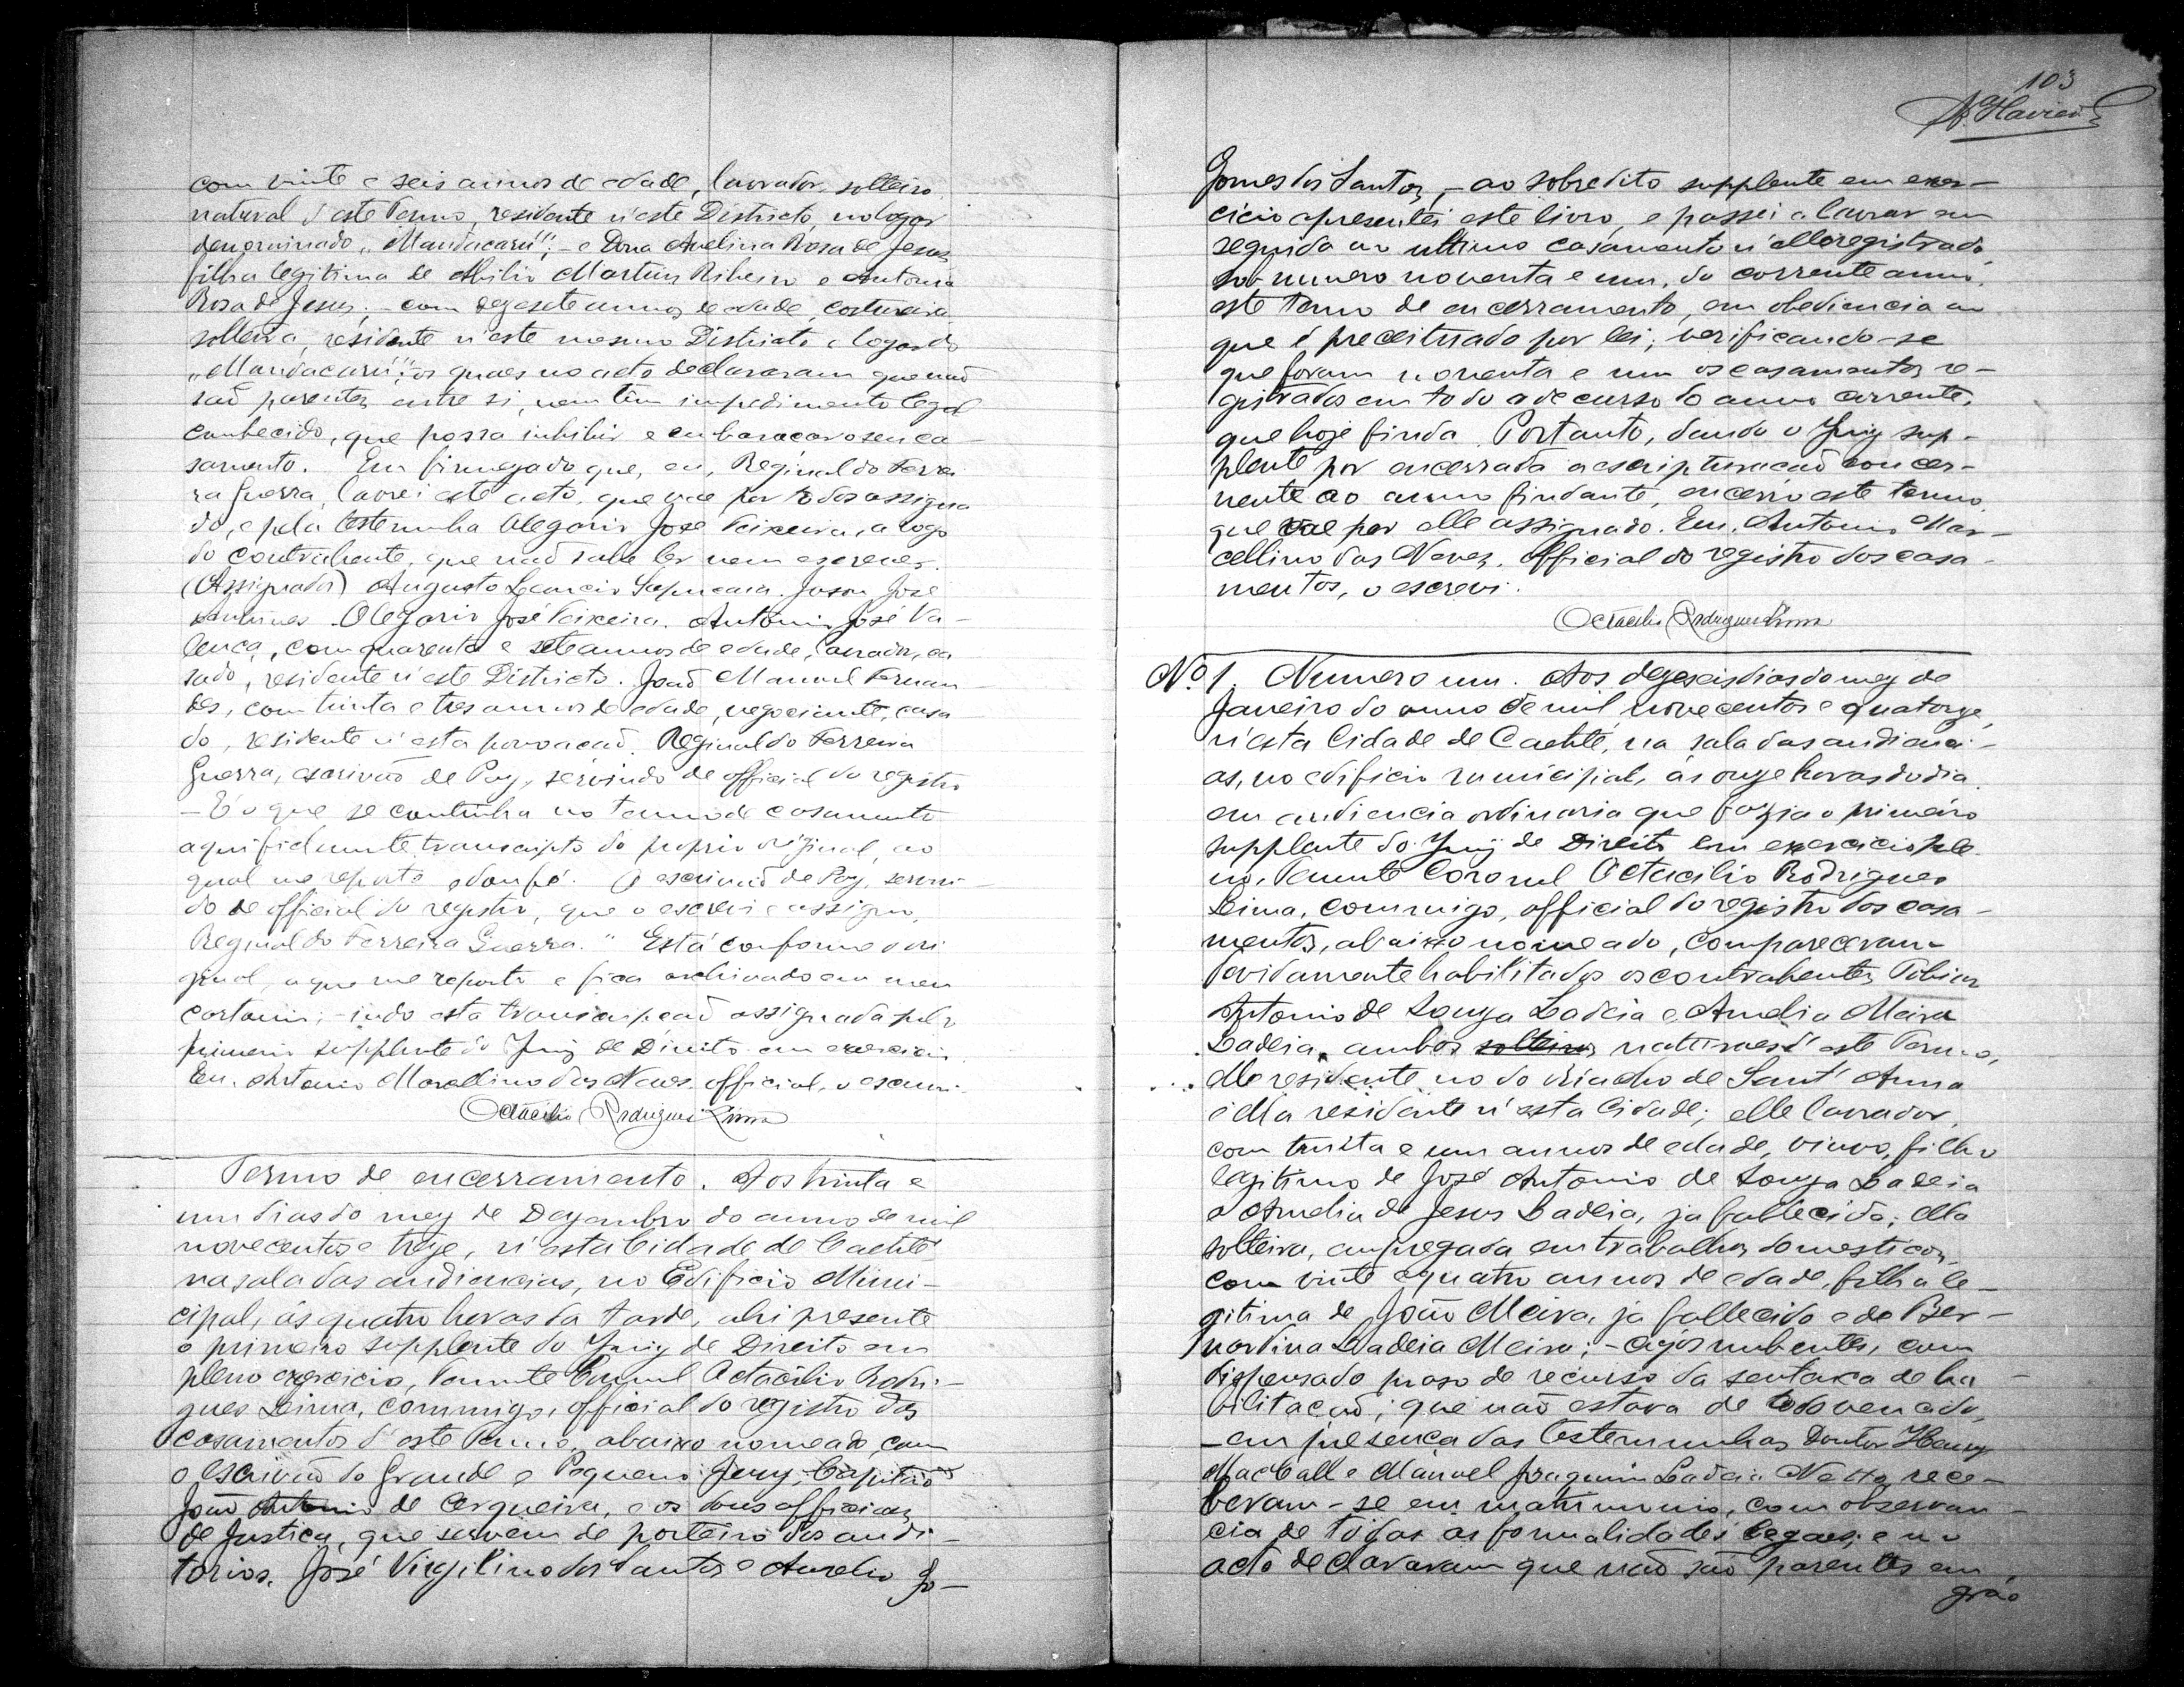 com vinte e seis annos de edade, lavrador, solteiro,
natural d'este Termo, residente n'este Districto, no logar
denominado "Mandacarú"; - e Dona Avelina Rosa de Jesus,
filha legitima de Abilio Martins Ribeiro e Antonia
Rosa de Jesus; - com dezesete annos de edade, costureira
solteira, residente n'este mesmo Districto e logar do
"Mandacarú"; os quaes no acto declararam que não
são parentes entre si, nem têm impedimento legal
conhecido, que possa inhibir e embaraçar o seu ca-
samento. Em firmeza do que, eu, Reginaldo Ferrei
ra Guerra, lavrei este acto, que vae por todos assigna
do, e pela testemunha Olegario José Teixeira, a rogo
do contrahente, que não sabe ler nem escrever.
(Assignados) Augusto Leoncio Sapucaia. José
Antunes. Olegario José Teixeira. Antonio José Va-
lença, com quarenta e sete annos de edade, lavrador, ca
sado, residente n'este Districto. João Manoel Fernan
des, com trinta e tres annos de edade, negociante, casa
do, residente n'esta povoação. Reginaldo Ferreira
Guerra, escrivão de Paz, servindo de official do registro
- E o que se continha no termo de casamento
aqui fielmente transcripto do proprio original, ao
qual me reporto e dou fé. O escrivão de Paz, servin-
do de official do registro, que o escrevi e assigno,
Reginaldo Ferreira Guerra." Está conforme o ori
ginal, a que me reporto e fica archivado em meu
cartorio; - indo esta transcripção assignada pelo
primeiro supplente do Juiz de Direito em exercicio.
Eu. Antonio Marcellino das Neves. official, o escrevi.
Octacilio Rodrigues Lima
Termo de encerramento. Aos trinta e
um dias do mez de Dezembro do anno de mil
novecentos e treze, n'esta Cidade de Caetité
na sala das audiencias, no Edificio Muni-
cipal, ás quatro horas da tarde, ahi presente
o primeiro supplente do Juiz de Direito em
pleno exercicio, Tenente Coronel Octacilio Rodri-
gues Lima, commigo, official do registro dos
casamentos d'este Termo, abaixo nomeado com
o escrivão do Grande e Pequeno Jury, Capitão
João Antonio de Cerqueira, e os dous officiaes
de Justiça, que servem de porteiro dos audi-
torios, José Virgilino dos Santos e Aurelio Go-
103
Gomes dos Santos, - ao sobredito supplente em exer-
cicio apresentei este livro, e passei a lavrar em
seguida ao ultimo casamento n'elle registrado,
sob numero noventa e um, do corrente anno,
este termo de encerramento, em obediencia ao
que é preceituado por lei; verificando-se
que foram noventa e um os casamentos re-
gistrados em todo o decurso do anno corrente,
que hoje finda. Portanto, dando o Juiz sup-
plente por encerrada a escripturação concer-
nente ao anno findante, encerro este termo,
que vae por elle assignado. Eu. Antonio Mar-
cellino das Neves. Official do registro dos casa-
mentos, o escrevi.
Octacilio Rodrigues Lima
Nº 1. Numero um. Aos dezeseis dias do mez de
Janeiro do anno de mil novecentos e quatorze,
n'esta Cidade de Caetité, na sala das audienci-
as, no edificio municipal, ás onze horas do dia,
em audiencia ordinaria que fazia o primeiro
supplente do Juiz de Direito em exercicio ple-
no, Tenente Coronel Octacilio Rodrigues
Lima, commigo, official do registro dos casa-
mentos, abaixo nomeado, compareceram
devidamente habilitados os contrahentes Tobias
Antonio de Souza Ladeia e Amelia Meira
Ladeia, ambos solteiros naturaes d'este Termo,
elle residente no do Riacho de Sant'Anna
e ella residente n'esta Cidade; elle lavrador,
com trinta e um annos de edade, viuvo, filho
legitimo de José Antonio de Souza Ladeia
e Amelia de Jesus Ladeia, ja fallecida; ella
solteira, empregada em trabalhos domesticos,
com vinte e quatro annos de edade, filha le-
gitima de João Meira, ja fallecido e de Ber-
nardina Ladeia Meira; - cujos nubentes, com
dispensado praso de recurso da sentença de ha-
bilitação, que não estava de todo vencido,
- em presença das testemunhas Doutor Henry
MacCall e Manoel Joaquim Ladeia Netto, rece-
beram-se em matrimonio, com observan-
cia de todas as formalidades legaes; e no
acto declararam que não são parentes em
gráo